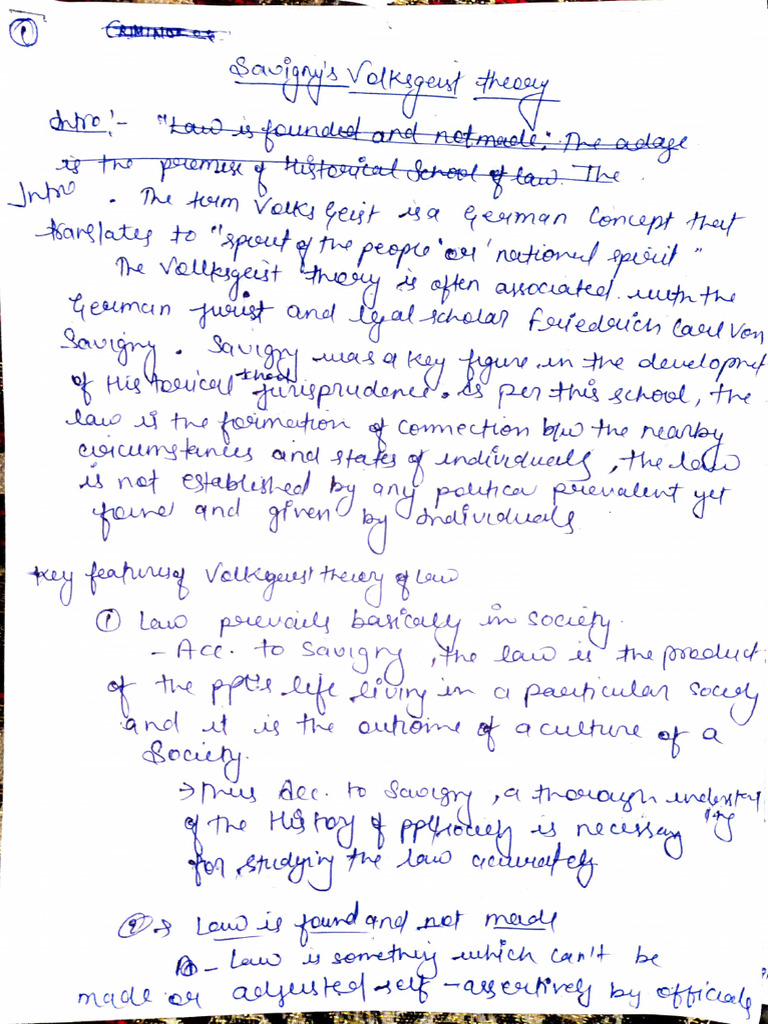 1
Savigny's Volksgeist theory
Intro:- "Law is founded and not made". The adage
is the premise of Historical School of law. The
Intro. The term Volksgeist is a German concept that
translates to "spirit of the people" or 'national spirit"
The Vollksgeist theory is often associated with the
German jurist and legal scholar Friedrich Carl Von
Savigny. Savigny was a key figure in the developmet
of Historical jurisprudence. As per this school, the
law is the formation of connection b/w the nearby
circumstances and states of individuals, the law
is not established by any politica prevalent yet
found and given by individuals
Key features of Volkgeist theory of law
① Law prevails basically in society.
- Acc. to Savigny, the law is the product
of the ppl's life living in a particular society
and it is the outcome of a culture of a
Society.
→ Thus Acc. to Savigny, a thorough understanding
of the History of ppl/society is necessary
for studying the law accurately
② → Law is found and not made
- Law is something which can't be
made or adjusted self-assertively by officials